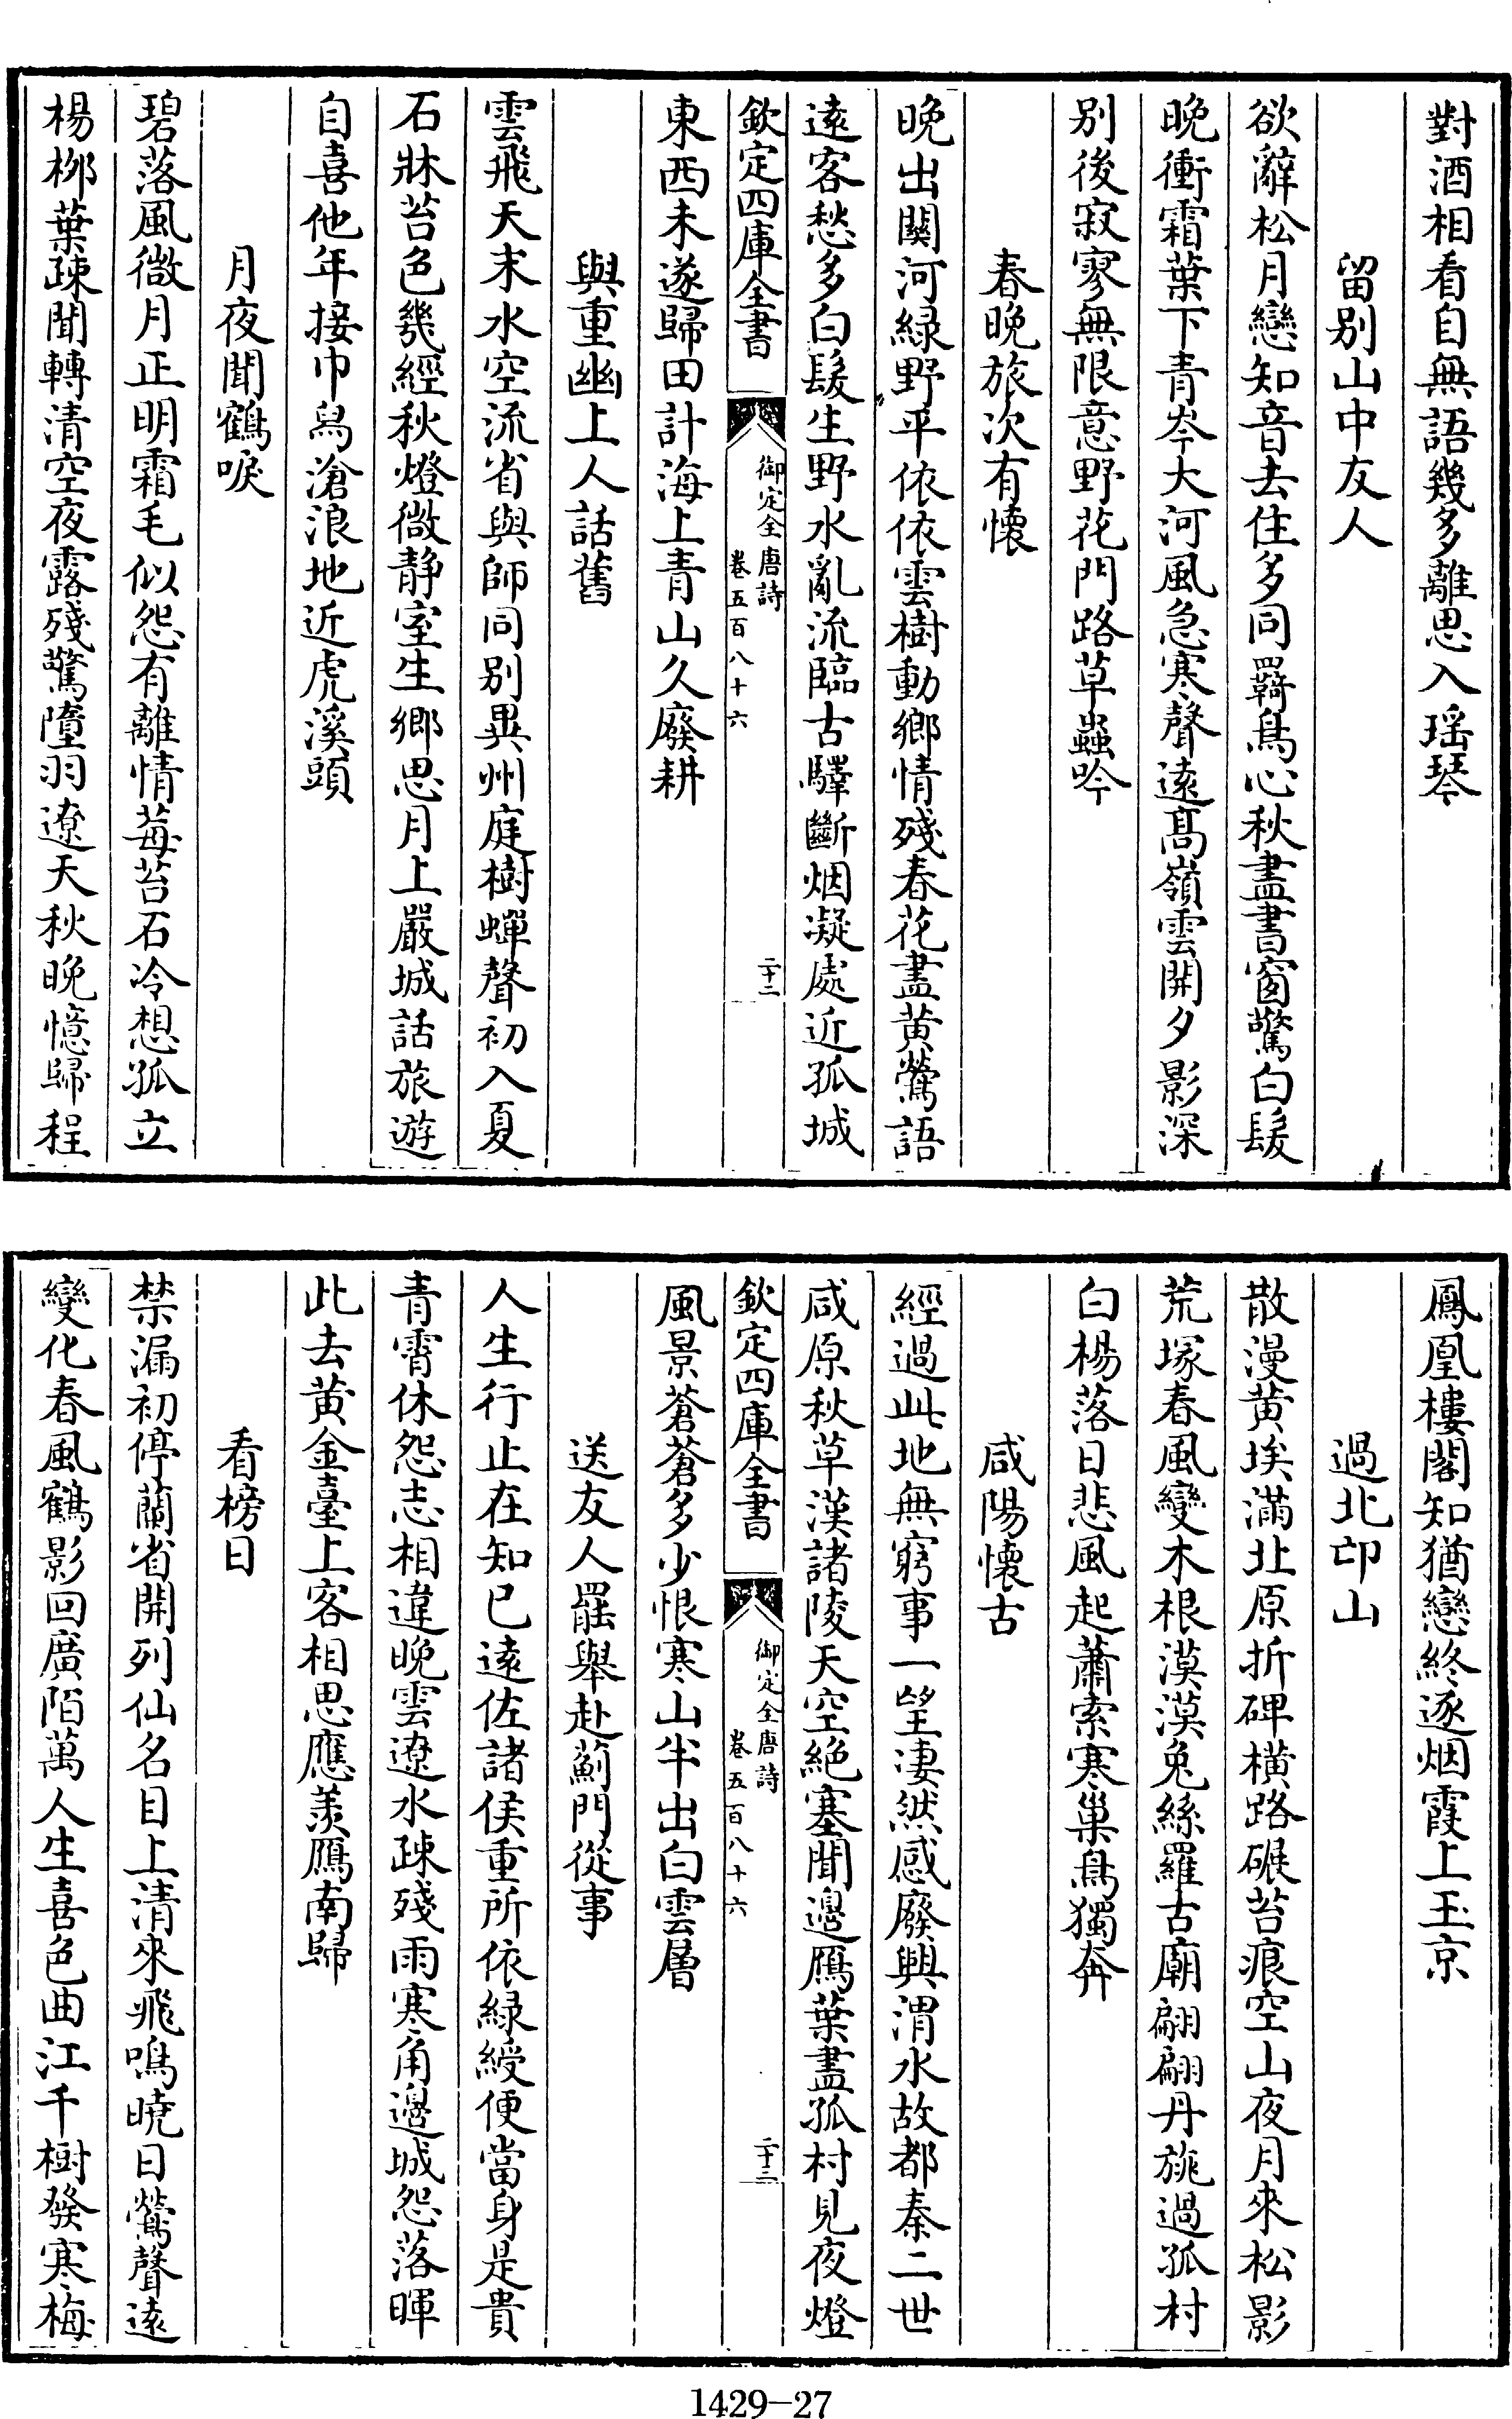 對酒相看自無語幾多離思入瑶琴
留别山中友人
欲辭松月戀知音去住多同羇鳥心秋盡書窗驚白髮
晚衝霜葉下青岑大河風急寒聲逺髙嶺雲開夕影深
别後寂寥無限意野花門路草蟲吟
春晚旅次有懐
晚出關河緑野平依依雲樹動鄉情殘春花盡黄鶯語
逺客愁多白髮生野水亂流臨古驛斷烟凝處近孤城
欽定四庫全書
御定全唐詩
卷五百八十六
二十二
東西未遂歸田計海上青山久廢耕
與重幽上人話舊
雲飛天末水空流省與師同别異州庭樹蟬聲初入夏
石牀苔色幾經秋燈微静室生鄉思月上嚴城話旅遊
自喜他年接巾舄滄浪地近虎溪頭
月夜聞鶴唳
碧落風微月正明霜毛似怨有離情莓苔石冷想孤立
楊栁葉疎聞轉清空夜露殘驚墮羽遼天秋晚憶歸程
鳳凰樓閣知猶戀終逐烟霞上玉京
過北邙山
散漫黄埃滿北原折碑横路碾苔痕空山夜月來松影
荒塚春風變木根漠漠兔絲羅古廟翩翩丹旐過孤村
白楊落日悲風起蕭索寒巢鳥獨奔
咸陽懐古
經過此地無窮事一望凄然感廢興渭水故都秦二世
咸原秋草漢諸陵天空絶塞聞邉鴈葉盡孤村見夜燈
欽定四庫全書
御定全唐詩
卷五百八十六
二十三
風景蒼蒼多少恨寒山半出白雲層
送友人罷舉赴薊門從事
人生行止在知已逺佐諸侯重所依緑綬便當身是貴
青霄休怨志相違晚雲遼水疎殘雨寒角邉城怨落暉
此去黄金臺上客相思應羨鴈南歸
看榜日
禁漏初停蘭省開列仙名目上清來飛鳴曉日鶯聲逺
變化春風鶴影回廣陌萬人生喜色曲江千樹發寒梅
1429-27